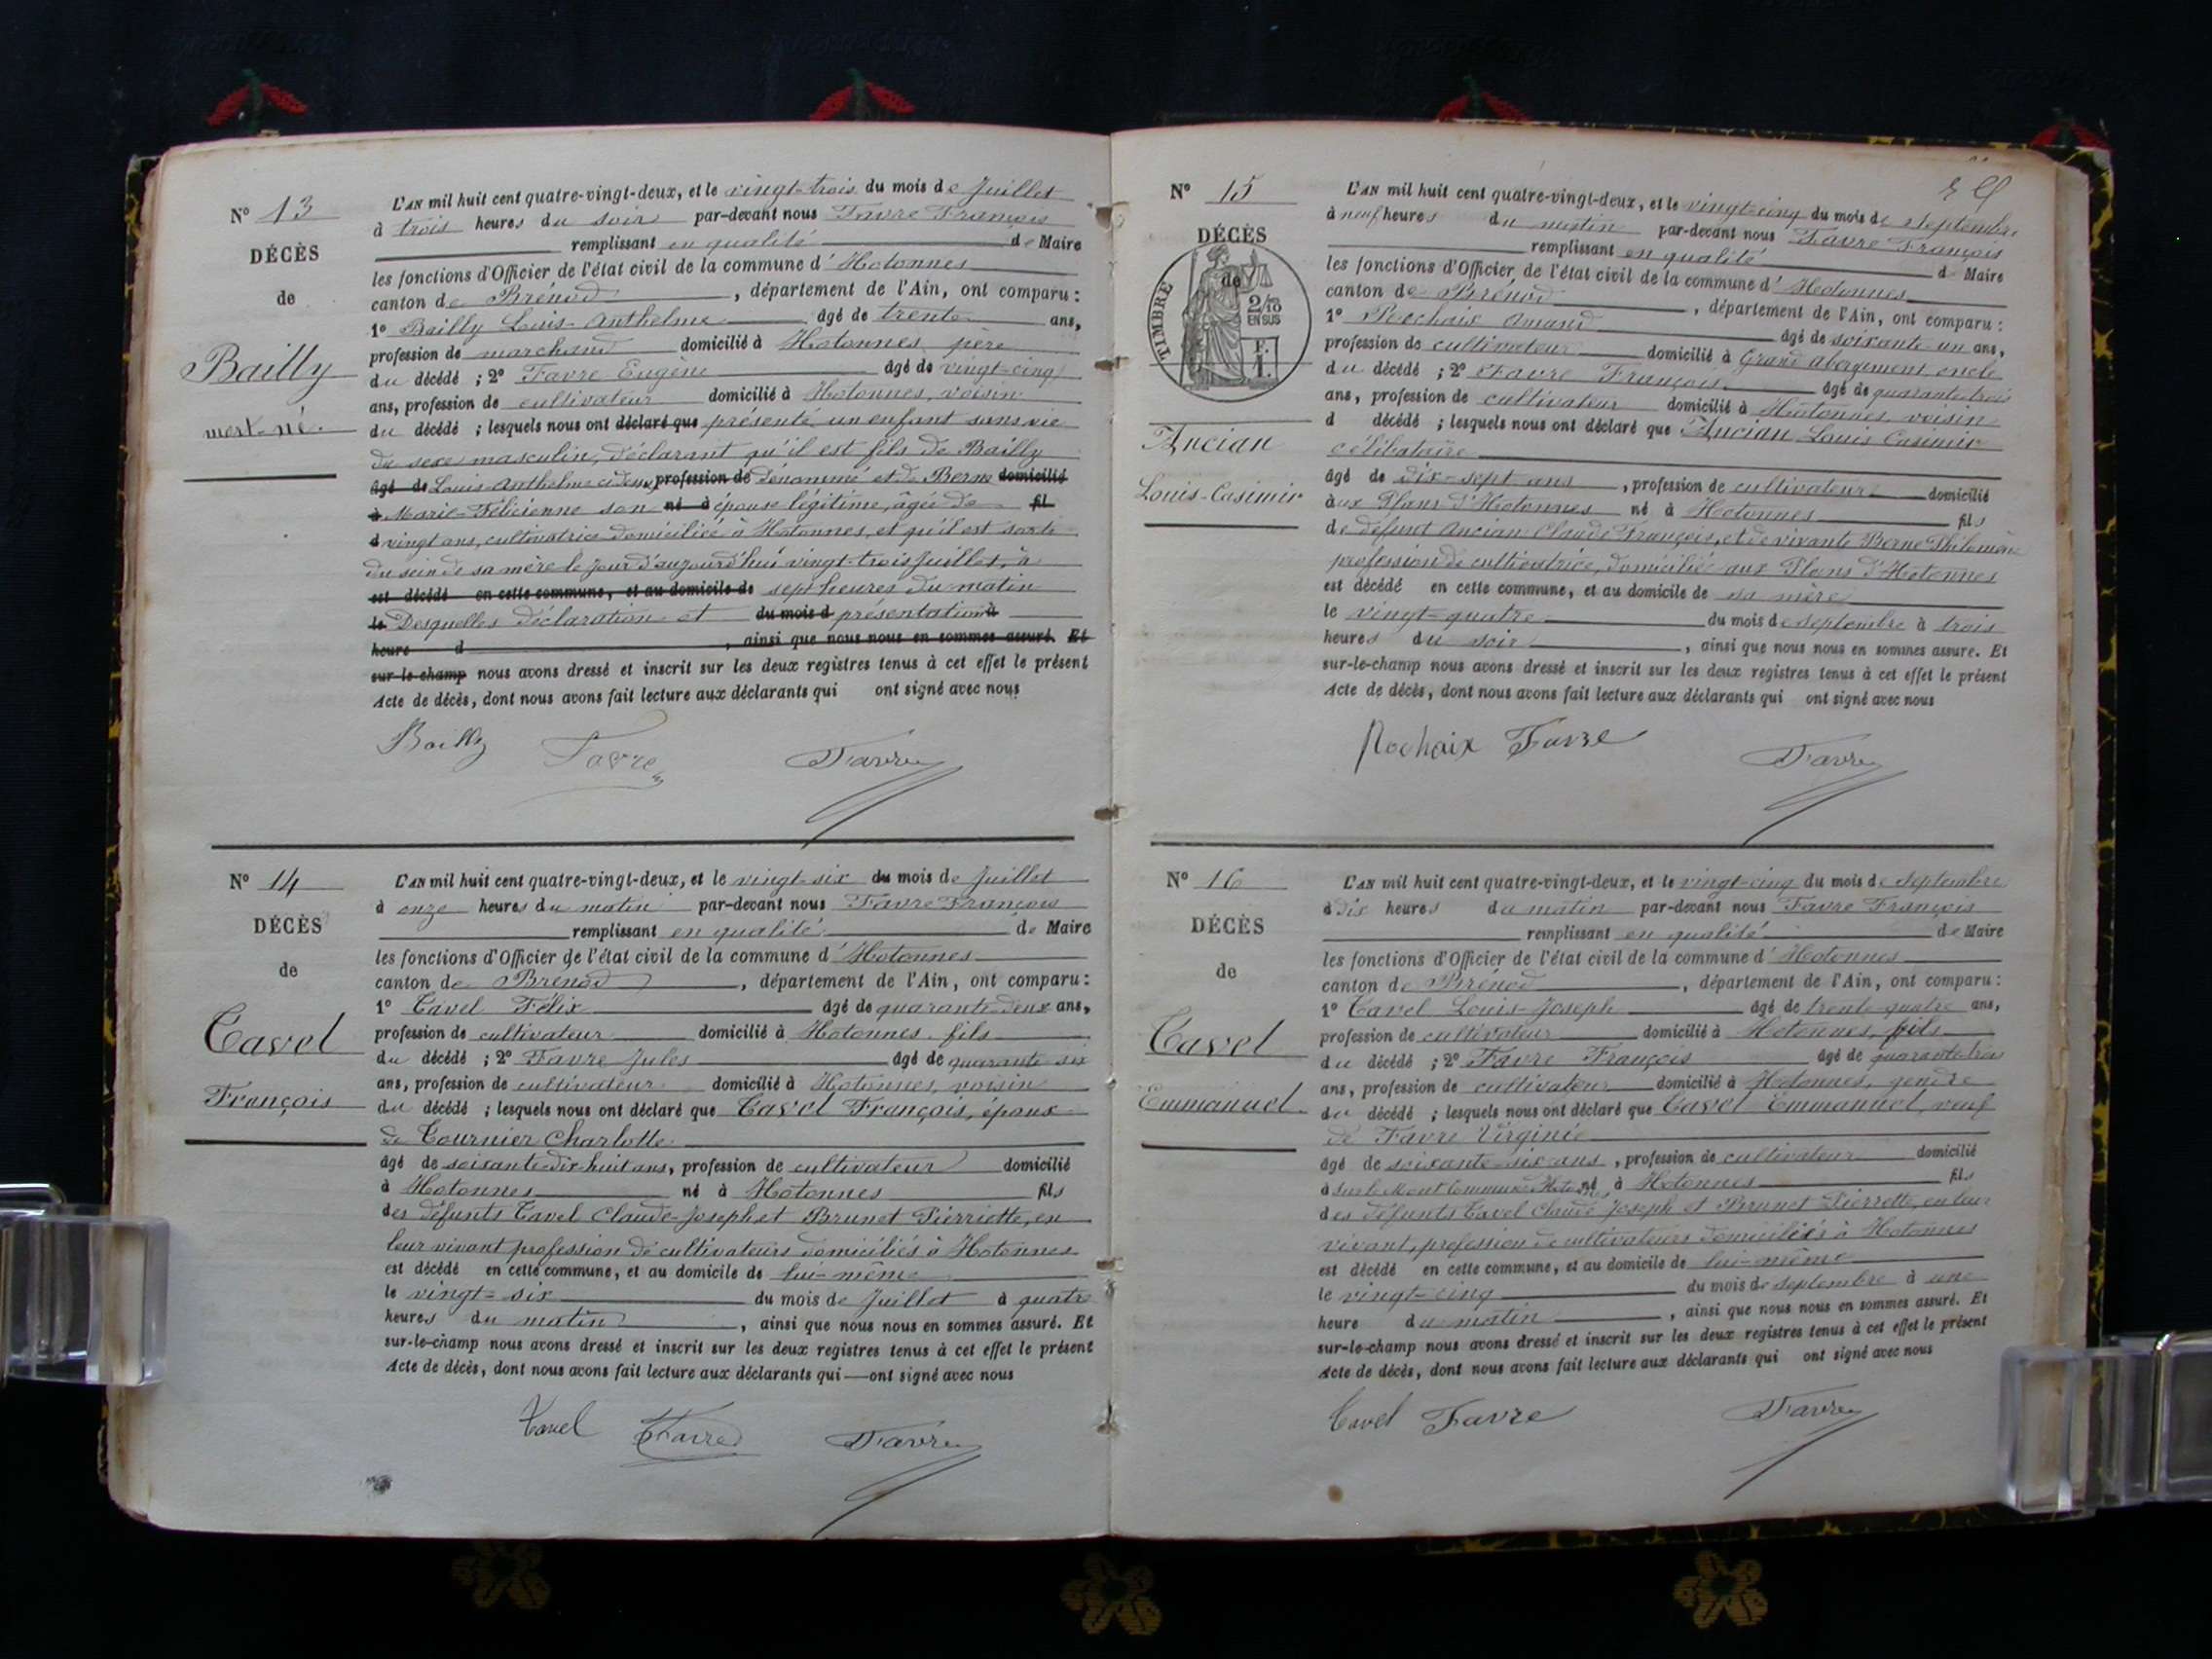 N° 13
DÉCÈS
de
Bailly
mort-né.
L'AN mil huit cent quatre-vingt-deux, et le vingt-trois du mois de Juillet
à trois heures du soir par-devant nous Favre François
remplissant en qualité de Maire
les fonctions d'Officier de l'état civil de la commune d'Hotonnes
canton de Brénod, département de l'Ain, ont comparu :
1° Bailly Louis-Anthelme âgé de trente ans,
profession de marchand domicilié à Hotonnes, père
du décédé ; 2° Favre Eugène âgé de vingt-cinq
ans, profession de cultivateur domicilié à Hotonnes, voisin
du décédé ; lesquels nous ont déclaré que présenté un enfant sans vie
du sexe masculin, déclarant qu'il est fils de Bailly
âgé de Louis-Anthelme ci-dessus profession de dénommé et de Berne domicilié
à Marie-Félicienne son né à épouse légitime, âgée de fil
d vingt ans, cultivatrice domiciliée à Hotonnes, et qu'il est sorti
du sein de sa mère le jour d'aujourd'hui vingt-trois Juillet, à
est décédé en cette commune, et au domicile de sept heures du matin
le Desquelles déclaration et du mois d présentation à
heure d , ainsi que nous nous en sommes assuré. Et
sur-le-champ nous avons dressé et inscrit sur les deux registres tenus à cet effet le présent
Acte de décès, dont nous avons fait lecture aux déclarants qui ont signé avec nous
Bailly Favre Favre
N° 14
DÉCÈS
de
Cavel
François
L'AN mil huit cent quatre-vingt-deux, et le vingt-six du mois de Juillet
à onze heures du matin par-devant nous Favre François
remplissant en qualité de Maire
les fonctions d'Officier de l'état civil de la commune d'Hotonnes
canton de Brénod, département de l'Ain, ont comparu :
1° Cavel Félix âgé de quarante-deux ans,
profession de cultivateur domicilié à Hotonnes, fils
du décédé ; 2° Favre Jules âgé de quarante six
ans, profession de cultivateur domicilié à Hotonnes, voisin
du décédé ; lesquels nous ont déclaré que Cavel François, époux
de Tournier Charlotte
âgé de soixante-dix-huit ans, profession de cultivateur domicilié
à Hotonnes né à Hotonnes fils
des défunts Cavel Claude-Joseph et Brunet Pierrette, en
leur vivant profession de cultivateurs domiciliés à Hotonnes
est décédé en cette commune, et au domicile de lui-même
le vingt-six du mois de Juillet à quatre
heures du matin, ainsi que nous nous en sommes assuré. Et
sur-le-champ nous avons dressé et inscrit sur les deux registres tenus à cet effet le présent
Acte de décès, dont nous avons fait lecture aux déclarants qui ont signé avec nous
Cavel Favre Favre
N° 15
DÉCÈS
de
TIMBRE
2/10
EN SUS
Ancian
Louis-Casimir
L'AN mil huit cent quatre-vingt-deux, et le vingt-cinq du mois de septembre
à neuf heures du matin par-devant nous Favre François
remplissant en qualité de Maire
les fonctions d'Officier de l'état civil de la commune d'Hotonnes
canton de Brénod, département de l'Ain, ont comparu :
1° Rochaix Amand âgé de soixante-un ans,
profession de cultivateur domicilié à Grand abergement, oncle
du décédé ; 2° Favre François âgé de quarante-trois
ans, profession de cultivateur domicilié à Hotonnes, voisin
d décédé ; lesquels nous ont déclaré que Ancian Louis Casimir
célibataire
âgé de dix-sept ans, profession de cultivateur domicilié
aux Plans d'Hotonnes né à Hotonnes fils
de défunt Ancian Claude François, et de vivante Berne Philomène
profession de cultivatrice, domiciliée aux Plans d'Hotonnes
est décédé en cette commune, et au domicile de sa mère
le vingt-quatre du mois de septembre à trois
heures du soir, ainsi que nous nous en sommes assuré. Et
sur-le-champ nous avons dressé et inscrit sur les deux registres tenus à cet effet le présent
Acte de décès, dont nous avons fait lecture aux déclarants qui ont signé avec nous
Rochaix Favre Favre
N° 16
DÉCÈS
de
Cavel
Emmanuel.
L'AN mil huit cent quatre-vingt-deux, et le vingt-cinq du mois de septembre
à dix heures du matin par-devant nous Favre François
remplissant en qualité de Maire
les fonctions d'Officier de l'état civil de la commune d'Hotonnes
canton de Brénod, département de l'Ain, ont comparu :
1° Cavel Louis-Joseph âgé de trente-quatre ans,
profession de cultivateur domicilié à Hotonnes, fils
du décédé ; 2° Favre François âgé de quarante-trois
ans, profession de cultivateur domicilié à Hotonnes, gendre
du décédé ; lesquels nous ont déclaré que Cavel Emmanuel, veuf
de Favre Virginie
âgé de soixante-six ans, profession de cultivateur domicilié
à sur le Mont Commune d'Hotonnes né à Hotonnes fils
des défunts Cavel Claude Joseph et Brunet Pierrette, en leur
vivant, profession de cultivateurs domiciliés à Hotonnes
est décédé en cette commune, et au domicile de lui-même
le vingt-cinq du mois de septembre à une
heure du matin, ainsi que nous nous en sommes assuré. Et
sur-le-champ nous avons dressé et inscrit sur les deux registres tenus à cet effet le présent
Acte de décès, dont nous avons fait lecture aux déclarants qui ont signé avec nous
Cavel Favre Favre